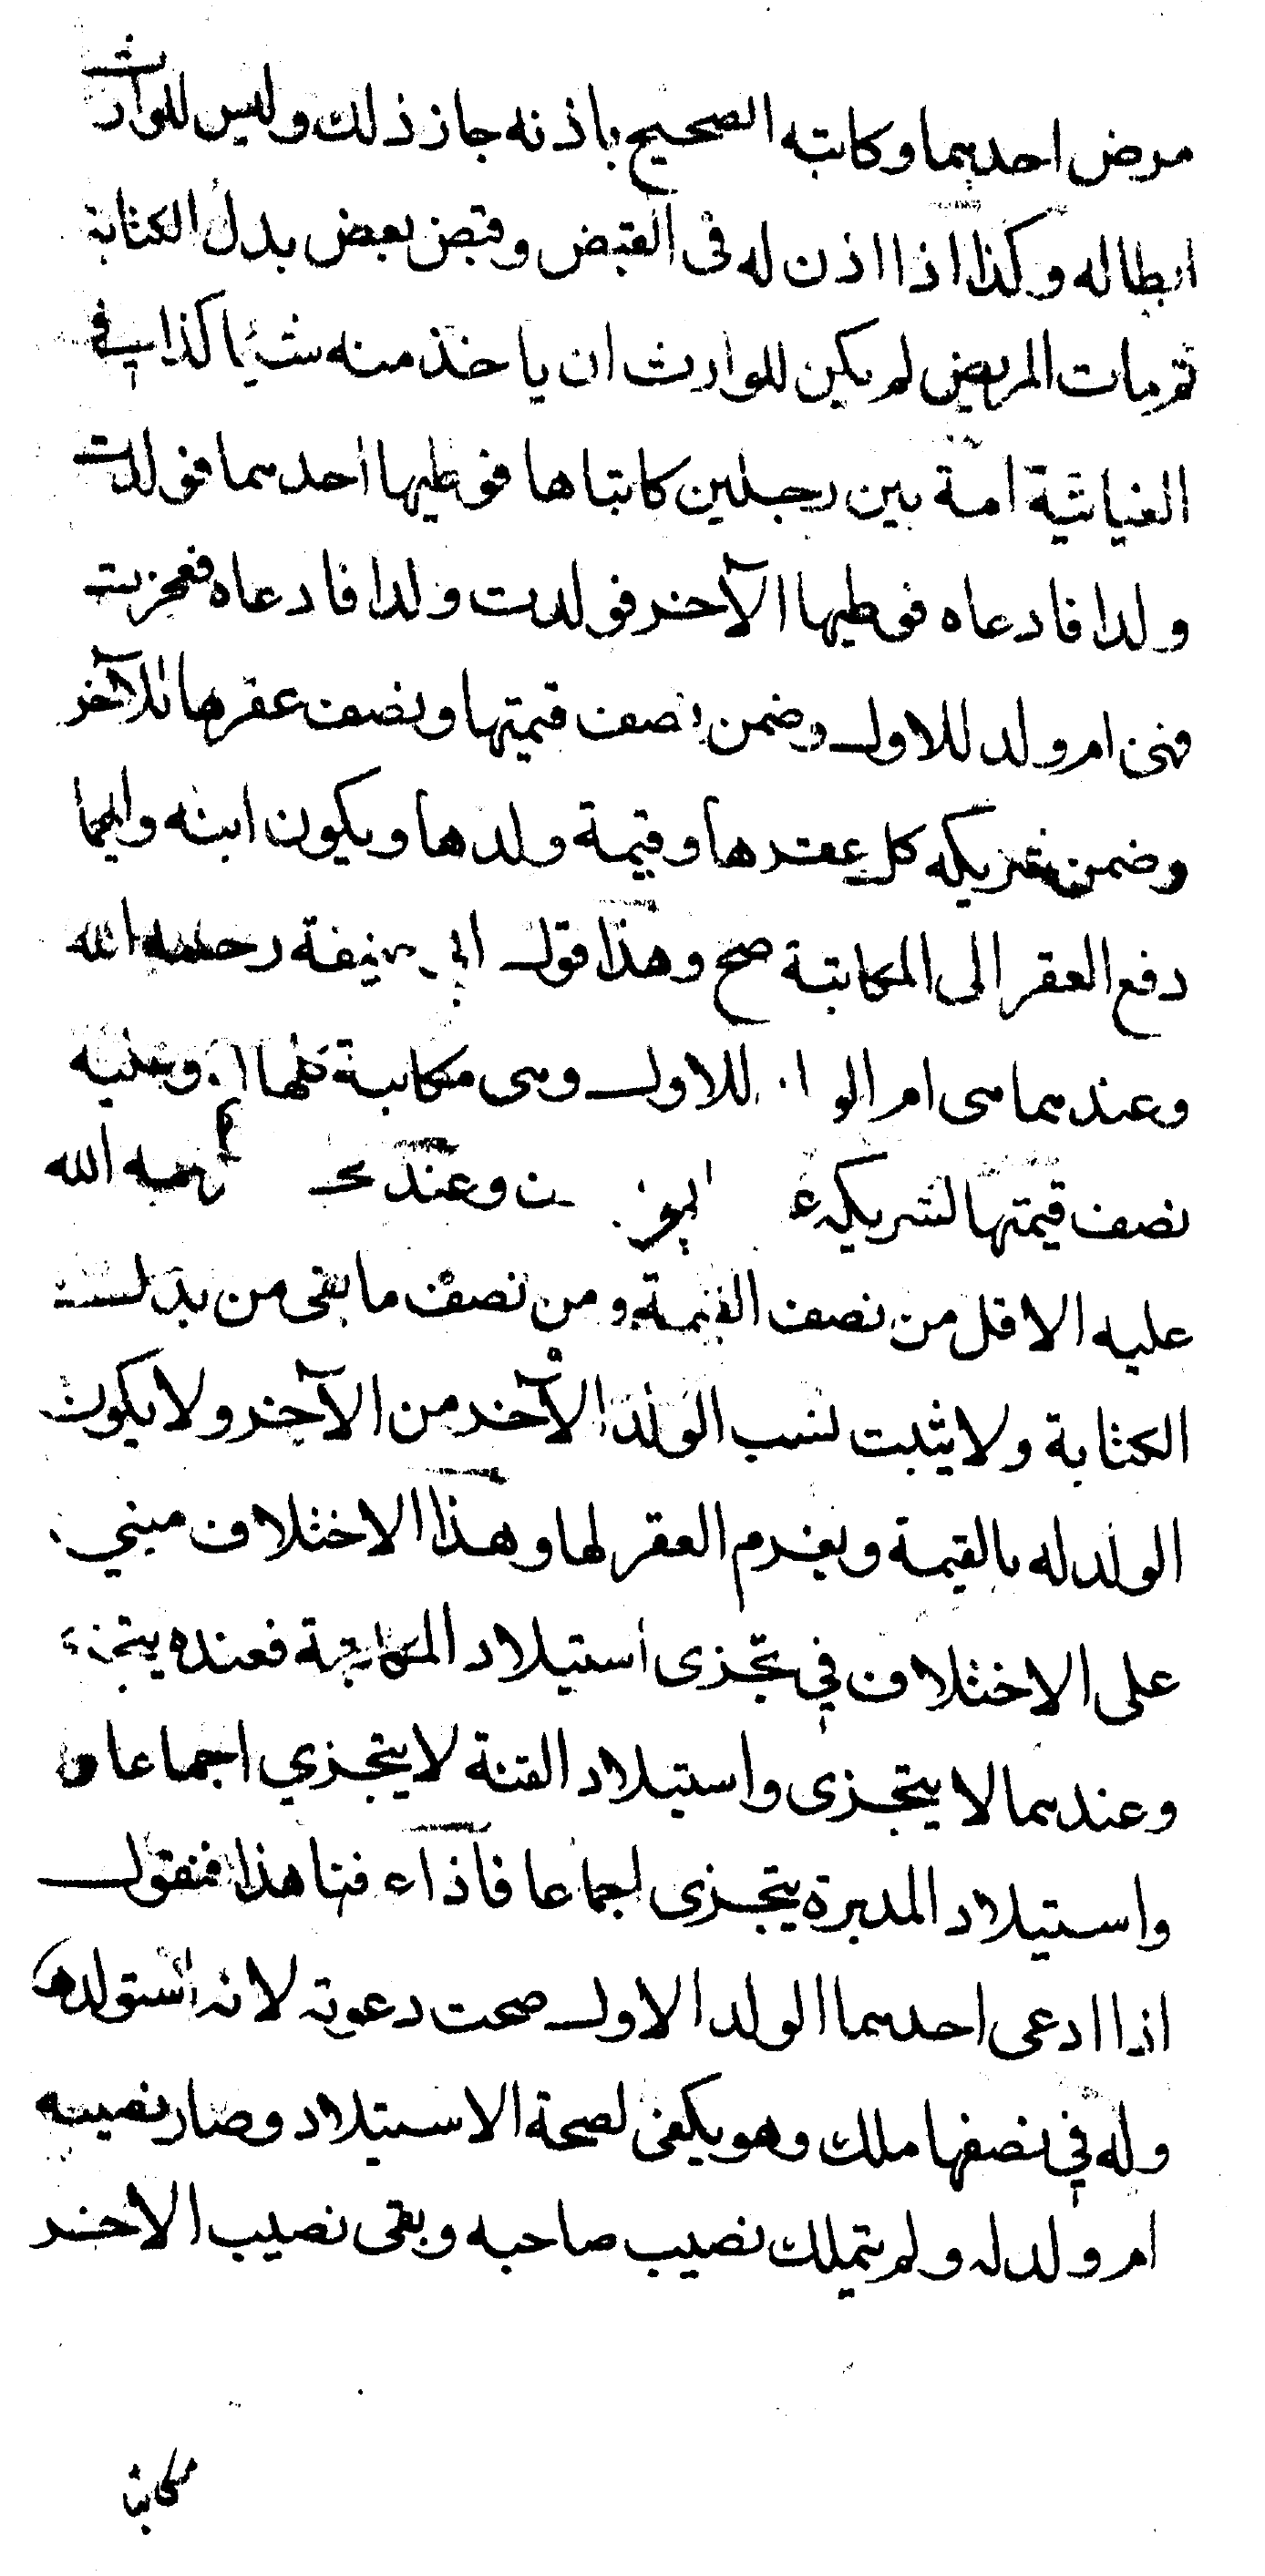 مرض احدهما وكاتبه الصحيح باذنه جاز ذلك وليس للوارث
ابطاله وكذا اذا اذن له فى القبض وقبض بعض بدل الكتابة
ثم مات المريض لم يكن للوارث ان ياخذ منه شيئا كذا فى
الغياثية امة بين رجلين كاتباها فوطيها احدهما فولدت
ولدا فادعاه فوطيها الآخر فولدت ولدا فادعاه فعجزت
فهى ام ولد للاول وضمن نصف قيمتها ونصف عقرها للآخر
وضمن شريكه كل عقرها وقيمة ولدها ويكون ابنه وايهما
دفع العقر الى المكاتبة صح وهذا قول ابي حنيفة رحمه الله
وعندهما هى ام الولد للاول وهى مكاتبة كلها وعليه
نصف قيمتها لشريكه وعند رحمه الله
عليه الاقل من نصف القيمة ومن نصف ما بقى من بدل
الكتابة ولا يثبت نسب الولد الآخر من الآخر ولا يكون
الولد له بالقيمة ويغرم العقر لها وهذا الاختلاف مبني
على الاختلاف في تجزى استيلاد المكاتبة فعنده يتجزء
وعندهما لا يتجزى واستيلاد القنة لا يتجزي اجماعا
واستيلاد المدبرة يتجزى اجماعا فاذا عرفنا هذا فنقول
اذا ادعى احدهما الولد الاول صحت دعوته لانه استولدها
وله في نصفها ملك وهو يكفى لصحة الاستيلاد وصار نصيبه
ام ولد له ولم يتملك نصيب صاحبه وبقى نصيب الاخر
مكاتبا